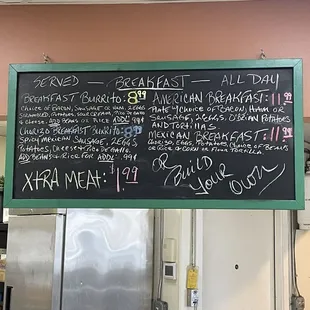 SERVED — BREAKFAST — ALL DAY
BREAKFAST BURRITO: 8.99
CHOICE OF BACON, SAUSAGE OR HAM, 2 EGGS,
POTATOES, SOUR CREAM,
& CHEESE. ADD BEANS OR RICE ADDL .99¢
CHORIZO BREAKFAST BURRITO: 8.99
SPICY MEXICAN SAUSAGE, 2 EGGS,
POTATOES, CHEESE & PICO DE GALLO.
ADD BEANS OR RICE FOR ADDL .99¢
XTRA MEAT: $1.99
AMERICAN BREAKFAST: 11.99
PLATE/CHOICE OF BACON, HAM OR
SAUSAGE, 2 EGGS, O'BRIEN POTATOES
AND TORTILLAS
MEXICAN BREAKFAST: 11.99
CHORIZO, EGGS, POTATOES, CHOICE OF BEANS
OR RICE & CORN OR FLOUR TORTILLA.
OR BUILD
YOUR OWN)